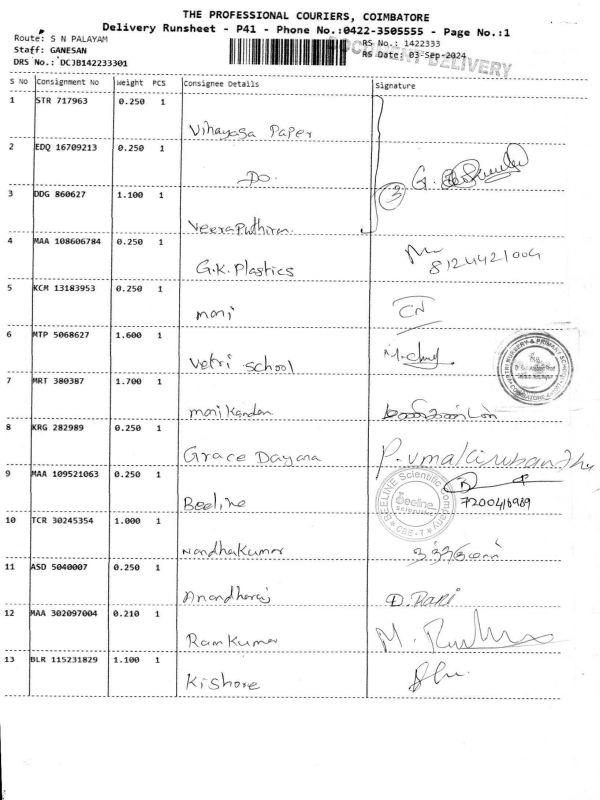 THE PROFESSIONAL COURIERS, COIMBATORE
Delivery Runsheet - P41 - Phone No.:0422-3505555 - Page No.:1
Route: S N PALAYAM
RS No.: 1422333
Staff: GANESAN
RS Date: 03-Sep-2024
DRS No.: DCJB142233301
DOCUMENT DELIVERY
S No Consignment No Weight PCS Consignee Details Signature
1 STR 717963 0.250 1
Vihayasa Paper
2 EDQ 16709213 0.250 1
Do. 3 G.
3 DDG 860627 1.100 1
Veeraputhiran
4 MAA 108606784 0.250 1
G.K. Plastics 8124421004
5 KCM 13183953 0.250 1
mani CN
6 MTP 5068627 1.600 1
Vetri School
7 MRT 380387 1.700 1
manikandan மணிகண்டன்
8 KRG 282989 0.250 1
Grace Dayana
9 MAA 109521063 0.250 1
Beeline 7200416989
BEELINE Scientific Company
Beeline
Scientific
CBE-7
10 TCR 30245354 1.000 1
Nandhakumar நந்தகுமார்
11 ASD 5040007 0.250 1
Anandharaj D. Rani
12 MAA 302097004 0.210 1
Ramkumar
13 BLR 115231829 1.100 1
Kishore